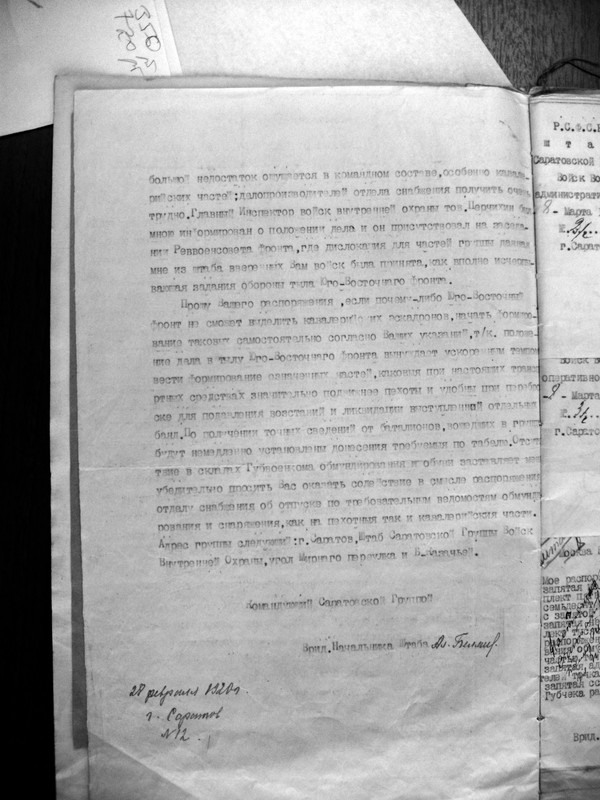 большой недостаток ощущается в командном составе, особенно кавале-
рийских частей; делопроизводителей отдела снабжения получить очень
трудно. Главный Инспектор войск внутренней охраны тов.
мною информирован о положении дела и он присутствовал на заседа-
нии Реввоенсовета фронта, где дислокация для частей группы данная
мне из штаба вверенных Вам войск была принята, как вполне исчерпы-
вающая задания обороны тыла Юго-Восточного фронта.
Прошу Вашего распоряжения, если почему-либо Юго-Восточный
фронт не сможет выделить кавалерийских эскадронов, начать формиро-
вание таковых самостоятельно согласно Ваших указаний, т/к. положе-
ние дела в тылу Юго-Восточного фронта вынуждает ускоренным темпом
вести формирование означенных частей, каковыя при настоящих трансп
ртных средствах значительно подвижнее пехоты и удобны при перебро
ске для подавления восстаний и ликвидации выступлений отдельных
банд. По получении точных сведений от баталионов, вошедших в группу
будут немедленно установлены донесения требуемыя по табелю. Отсут
твие в складах Губвоенкома обмундирования и обуви заставляет меня
убедительно просить Вас оказать содействие в смысле распоряжения
отделу снабжения об отпуске по требовательным ведомостям обмунд
рования и снаряжения, как на пехотныя так и кавалерийския части.
Адрес группы следующий: г. Саратов, Штаб Саратовской Группы Войск
Внутренней Охраны, угол Мирного переулка и Б. Казачьей.
Командующий Саратовской Группой
Врид. Начальника Штаба
28 февраля 1920 г.
г. Саратов
№ 12.
Р.С.Ф.С.Р
Штаб
Саратовской
Войск Во
административ
8 - Марта
г. Сарат
Войск В
оперативно
-8 - Марта
г. Сарато
Москва
Мое распор
запятая
плект
семьдесят
с запятой
запятая
распоряжен
частью
запятая
запятая
Губчека ра
Врид.